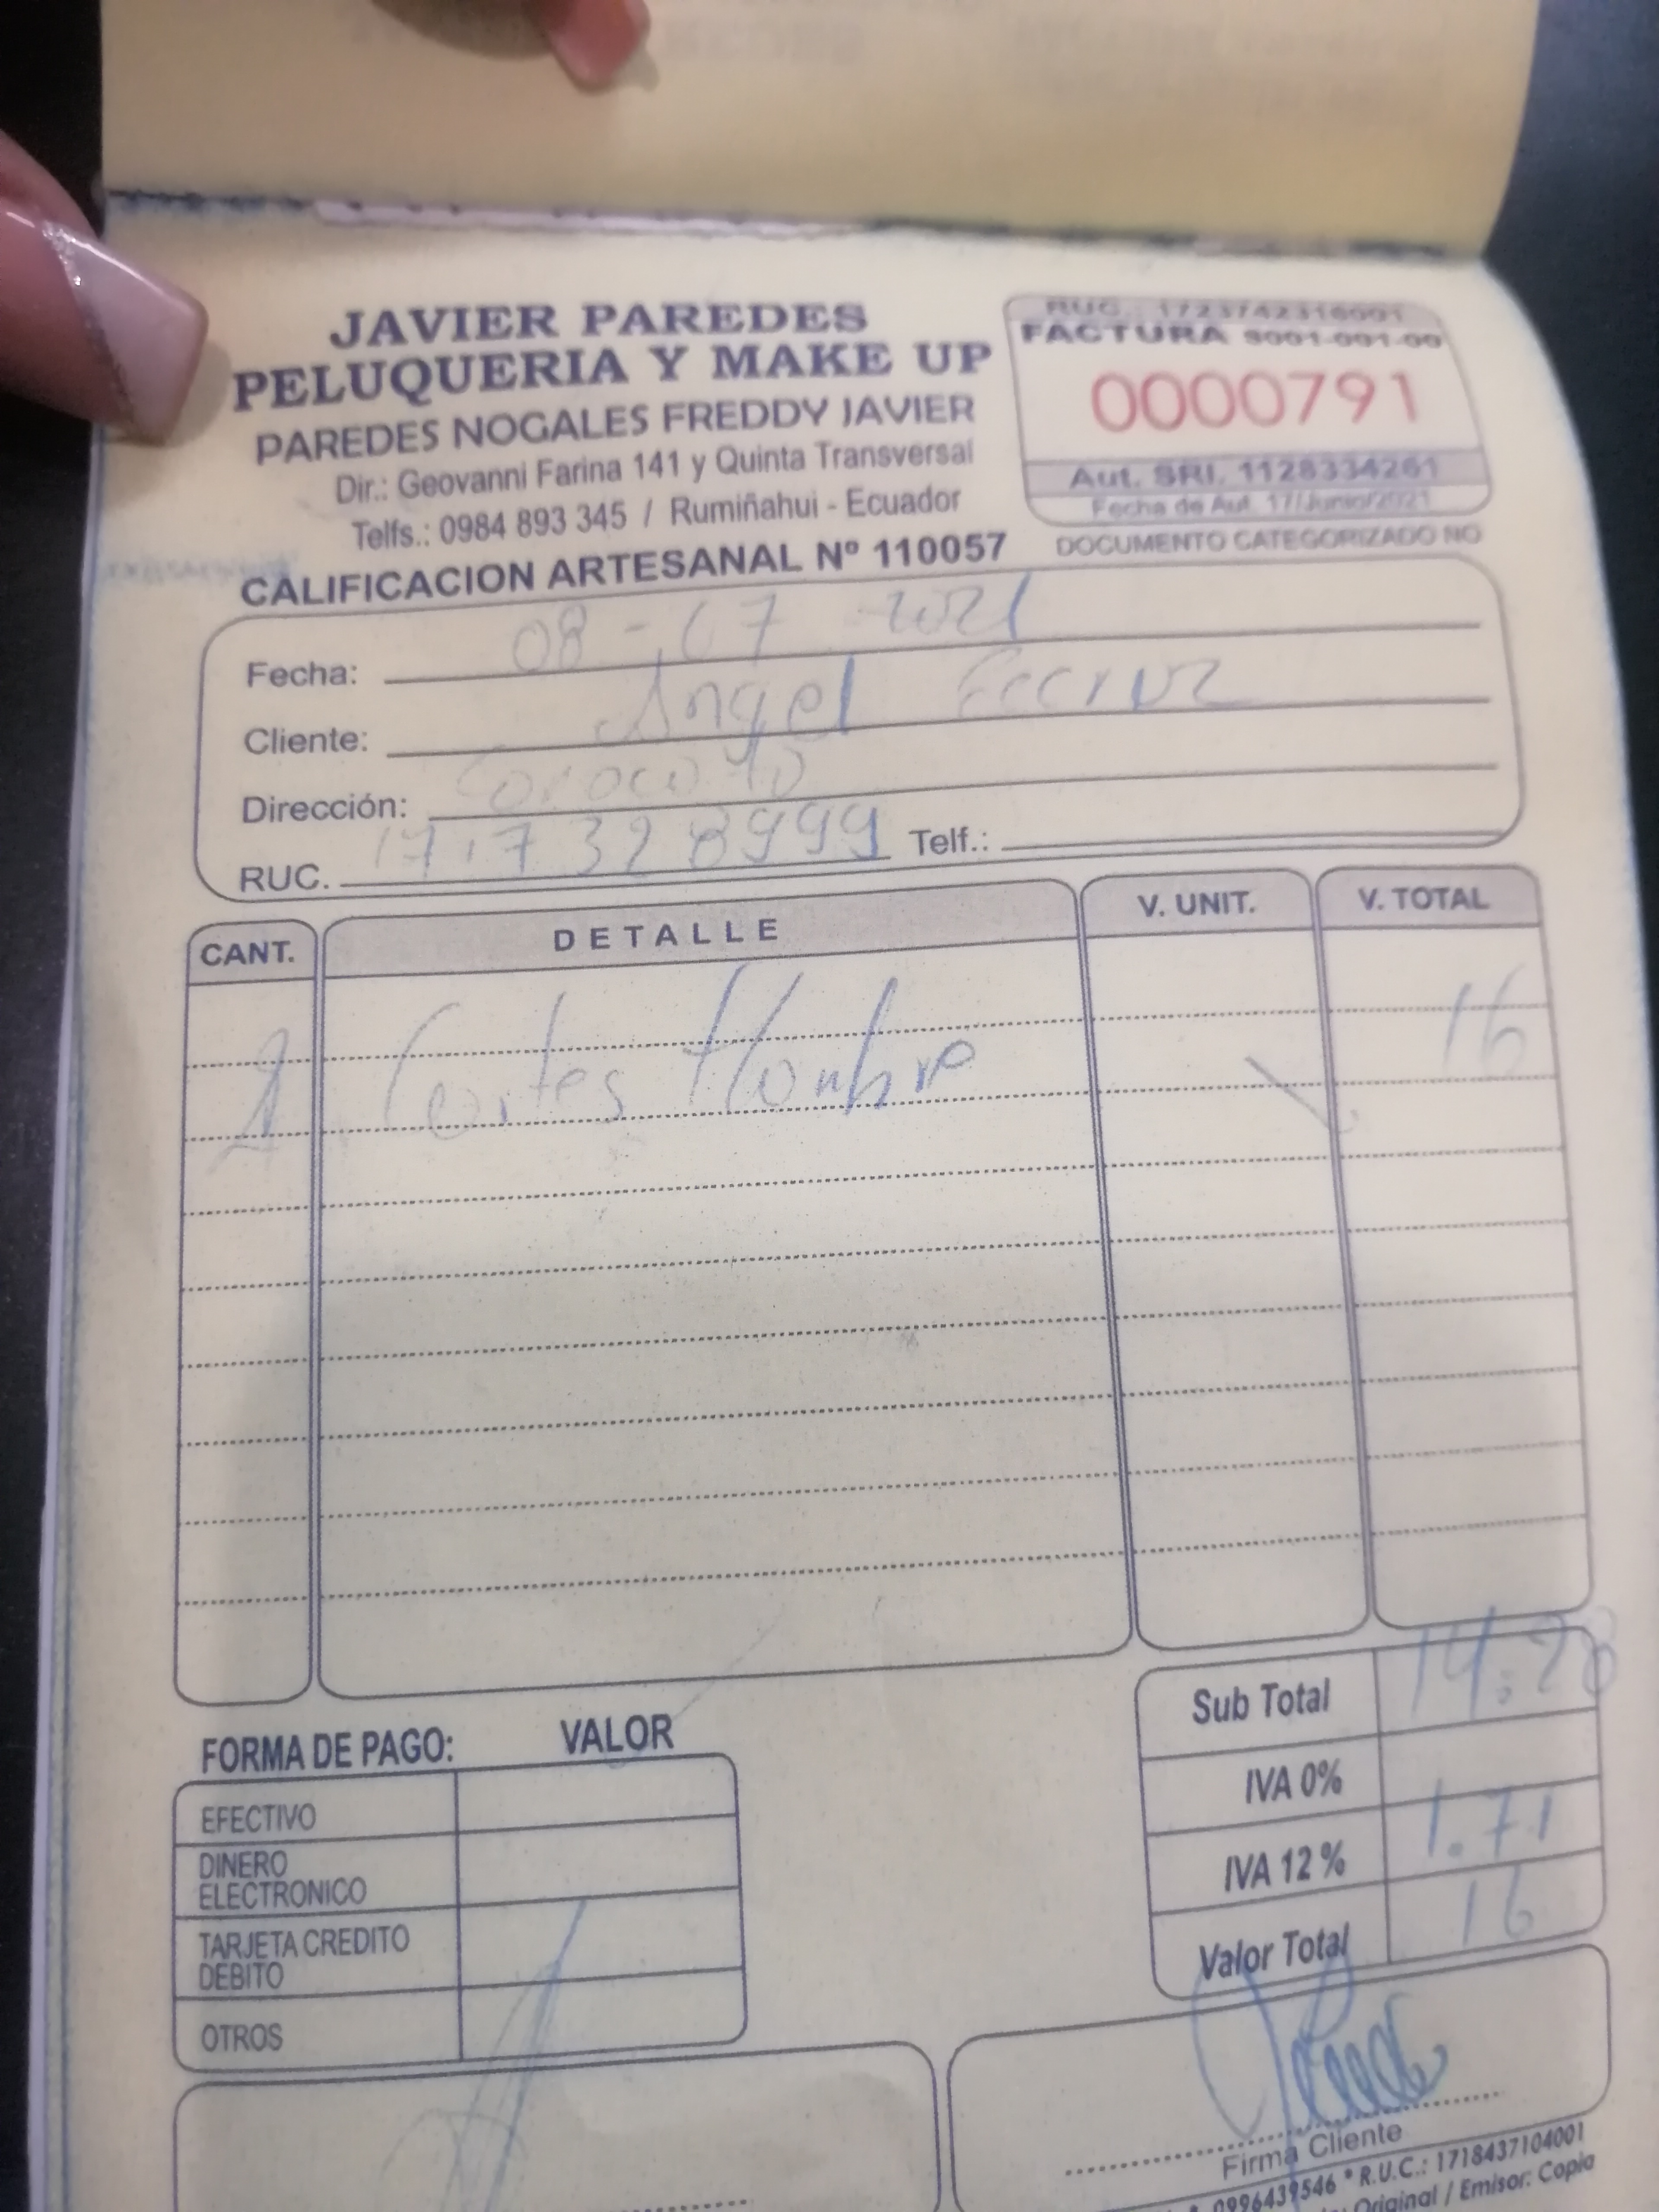 JAVIER PAREDES
PELUQUERIA Y MAKE UP
PAREDES NOGALES FREDDY JAVIER
Dir.: Geovanni Farina 141 y Quinta Transversal
Telfs.: 0984 893 345 / Rumiñahui - Ecuador
CALIFICACION ARTESANAL Nº 110057
RUC.: 1723742316001
FACTURA S001-001-00
0000791
Aut. SRI. 1128334261
Fecha de Aut. 17/Junio/2021
DOCUMENTO CATEGORIZADO NO
Fecha: 08 - 07 2021
Cliente: Angel
Dirección:
RUC. 1717328999 Telf.:
CANT. DETALLE V. UNIT. V. TOTAL
2 Cortes Hombre 16
Sub Total 14.28
IVA 0%
IVA 12 % 1.71
Valor Total 16
FORMA DE PAGO: VALOR
EFECTIVO
DINERO
ELECTRONICO
TARJETA CREDITO
DEBITO
OTROS
Firma Cliente
0996439546 * R.U.C.: 1718437104001
Original / Emisor: Copia